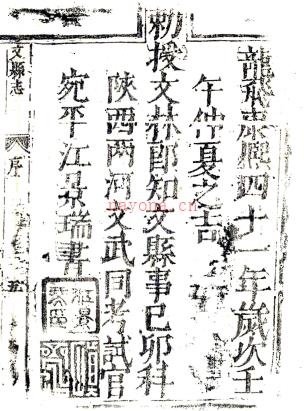 龍飛康熙四十一年歲次壬
午仲夏之吉
勅授文林郎知文縣事己卯科
陝西兩河文武同考試官
宛平江景瑞書
文縣志
序
五
nayona.cn